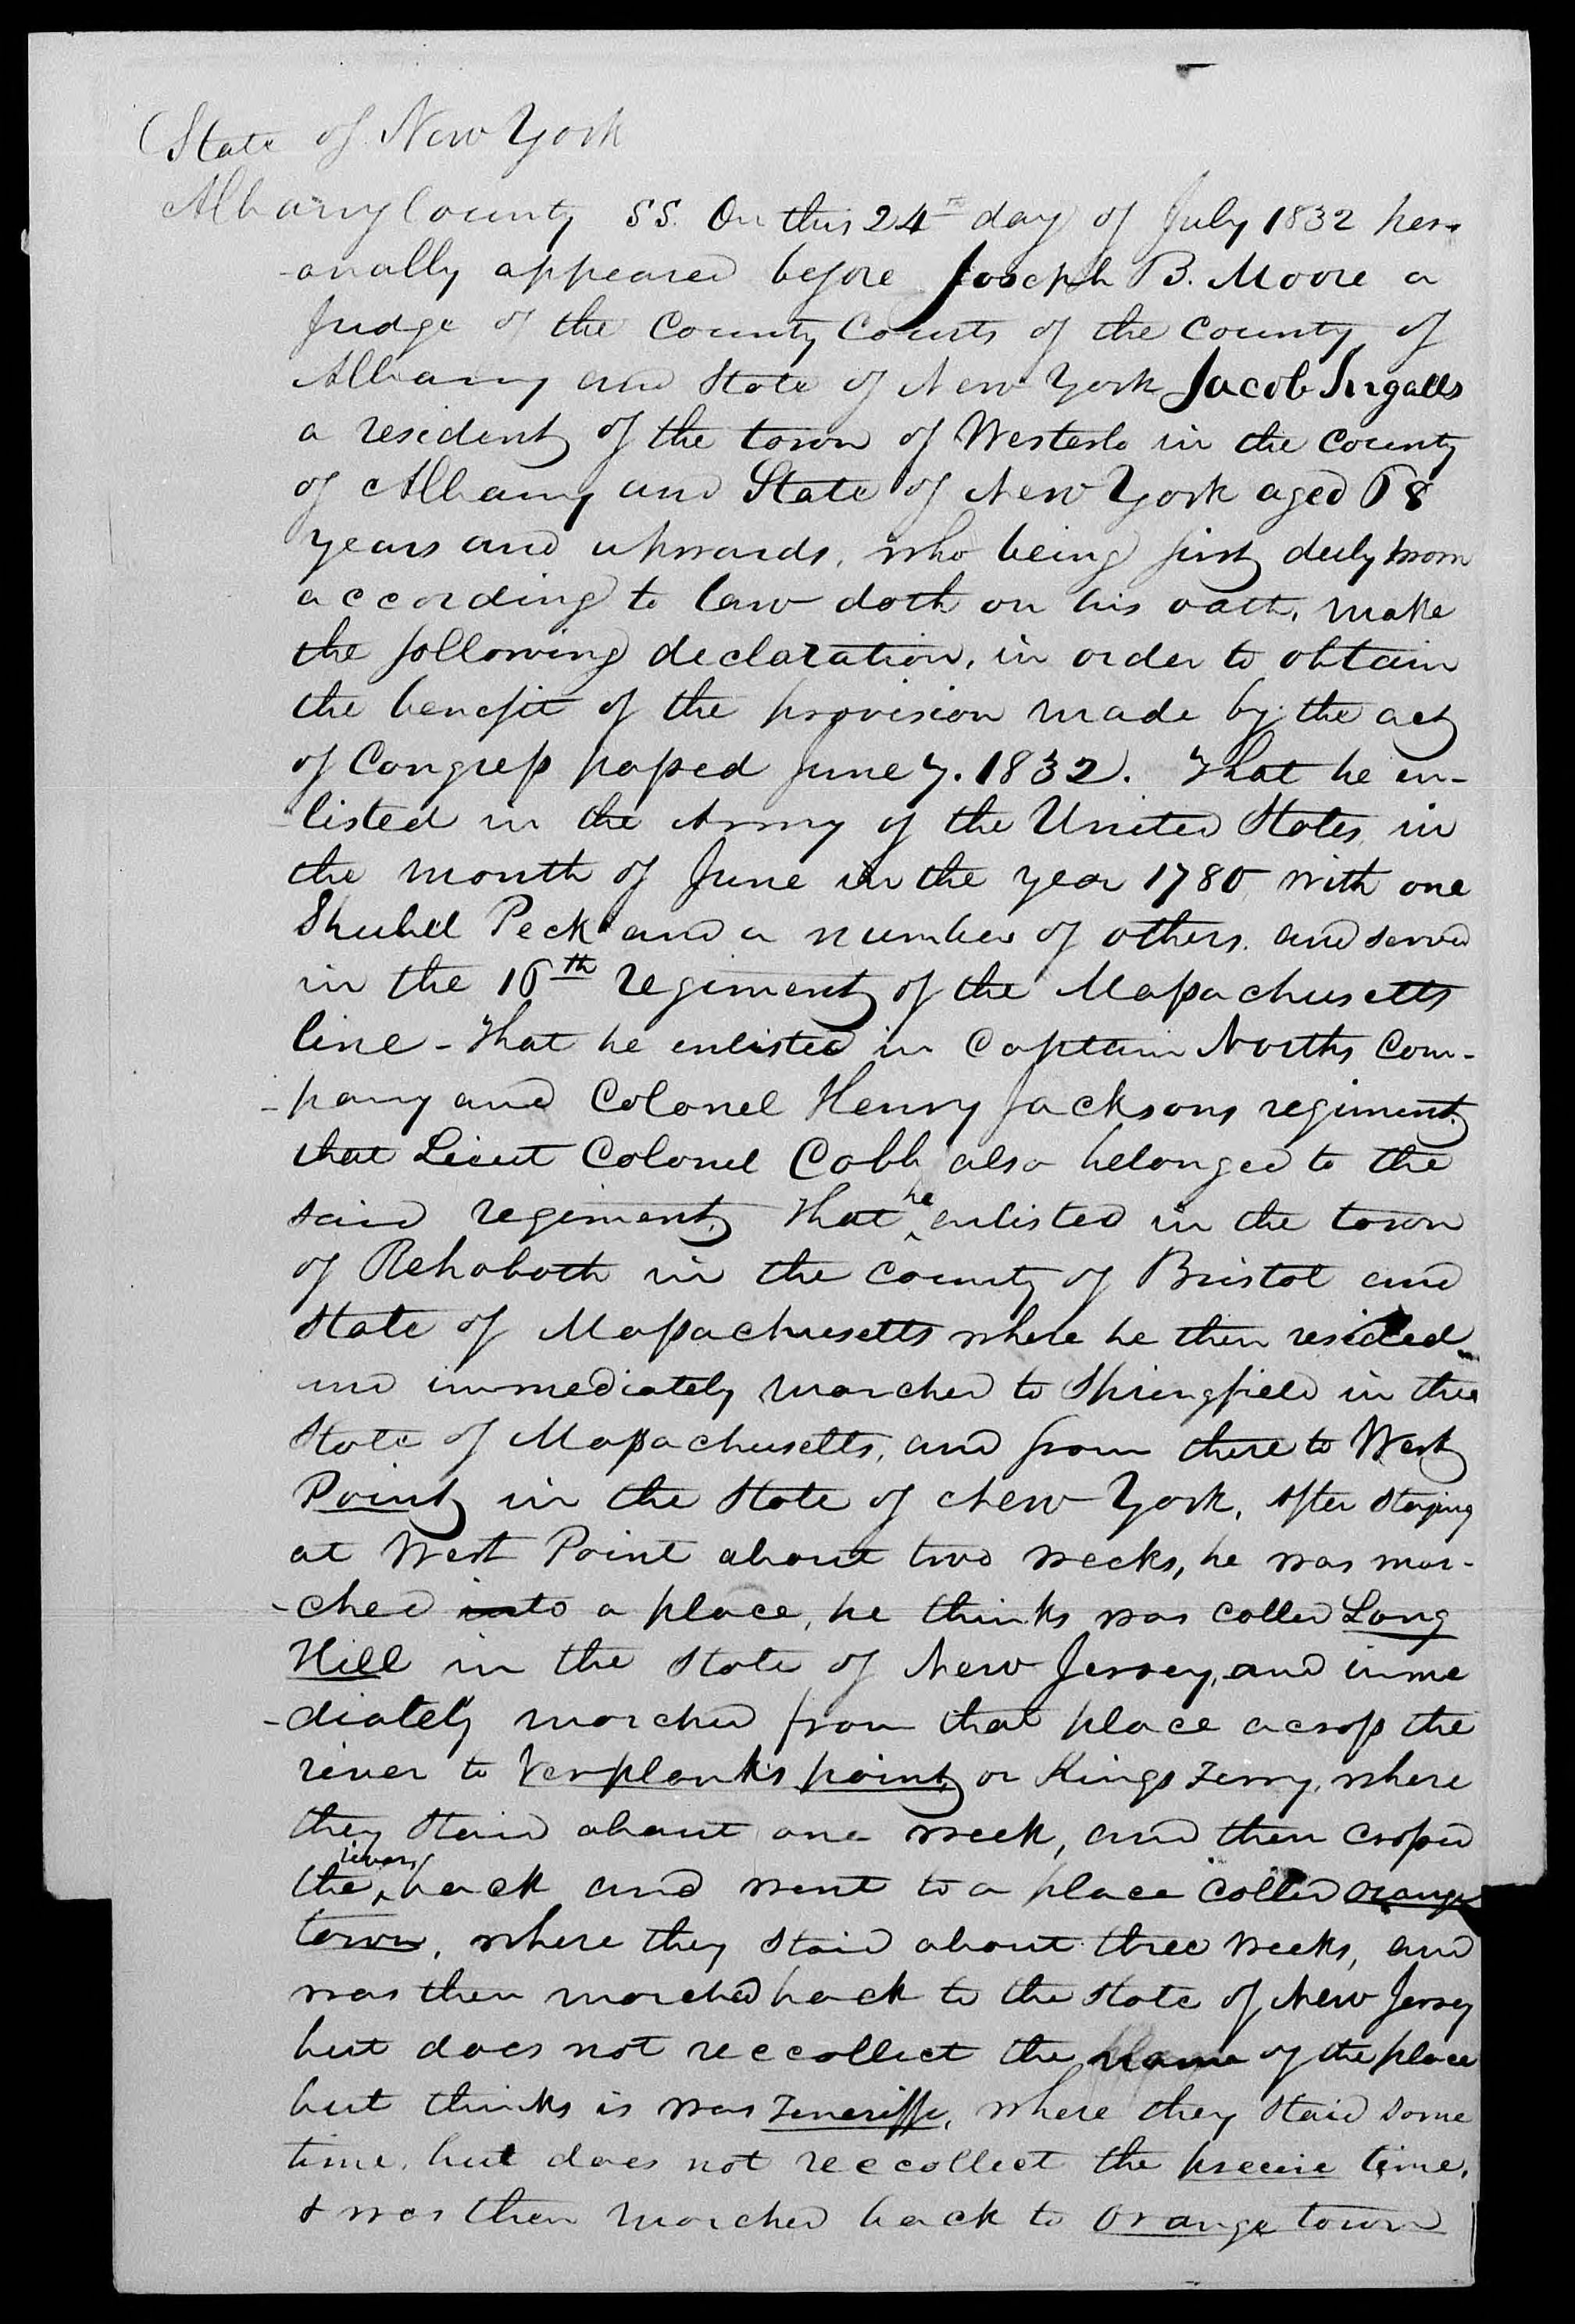 State of New York
Albany County SS. On this 24th day of July 1832 pers
-onally appeared before Joseph B. Moore a
Judge of the County Courts of the County of
Albany and State of New York Jacob Ingalls
a resident of the town of Westerlo in the County
of Albany and State of New York aged 68
years and upwards, who being first duly sworn
according to law doth on his oath, make
the following declaration, in order to obtain
the benefit of the provision made by the act
of Congress passed June 7. 1832. That he en-
listed in the Army of the United States, in
the month of June in the year 1780 with one
Shubel Peck and a number of others. and served
in the 16th regiment of the Massachusetts
line - that he enlisted in Captain Norths Com-
-pany and Colonel Henry Jacksons regiment,
that Lieut Colonel Cobb also belonged to the
said regiment, that he enlisted in the town
of Rehoboth in the County of Bristol and
State of Massachusetts where he then resided
and immediately marched to Springfield in the
State of Massachusetts, and from there to West
Point in the State of New York, After staying
at West Point about two weeks, he was mar-
-ched into a place, he thinks was called Long
Hill in the State of New Jersey, and imme
-diately marched from that place across the
river to Verplanks point or Kings Ferry, where
they staid about one week, and then crossed
the river back and went to a place called Orange
town, where they staid about three weeks, and
was then marched back to the State of New Jersey
but does not reccollect the name of the place
but thinks is was Teneriffe, where they staid some
time, but does not reccollect the precise time,
& was then marched back to Orange town